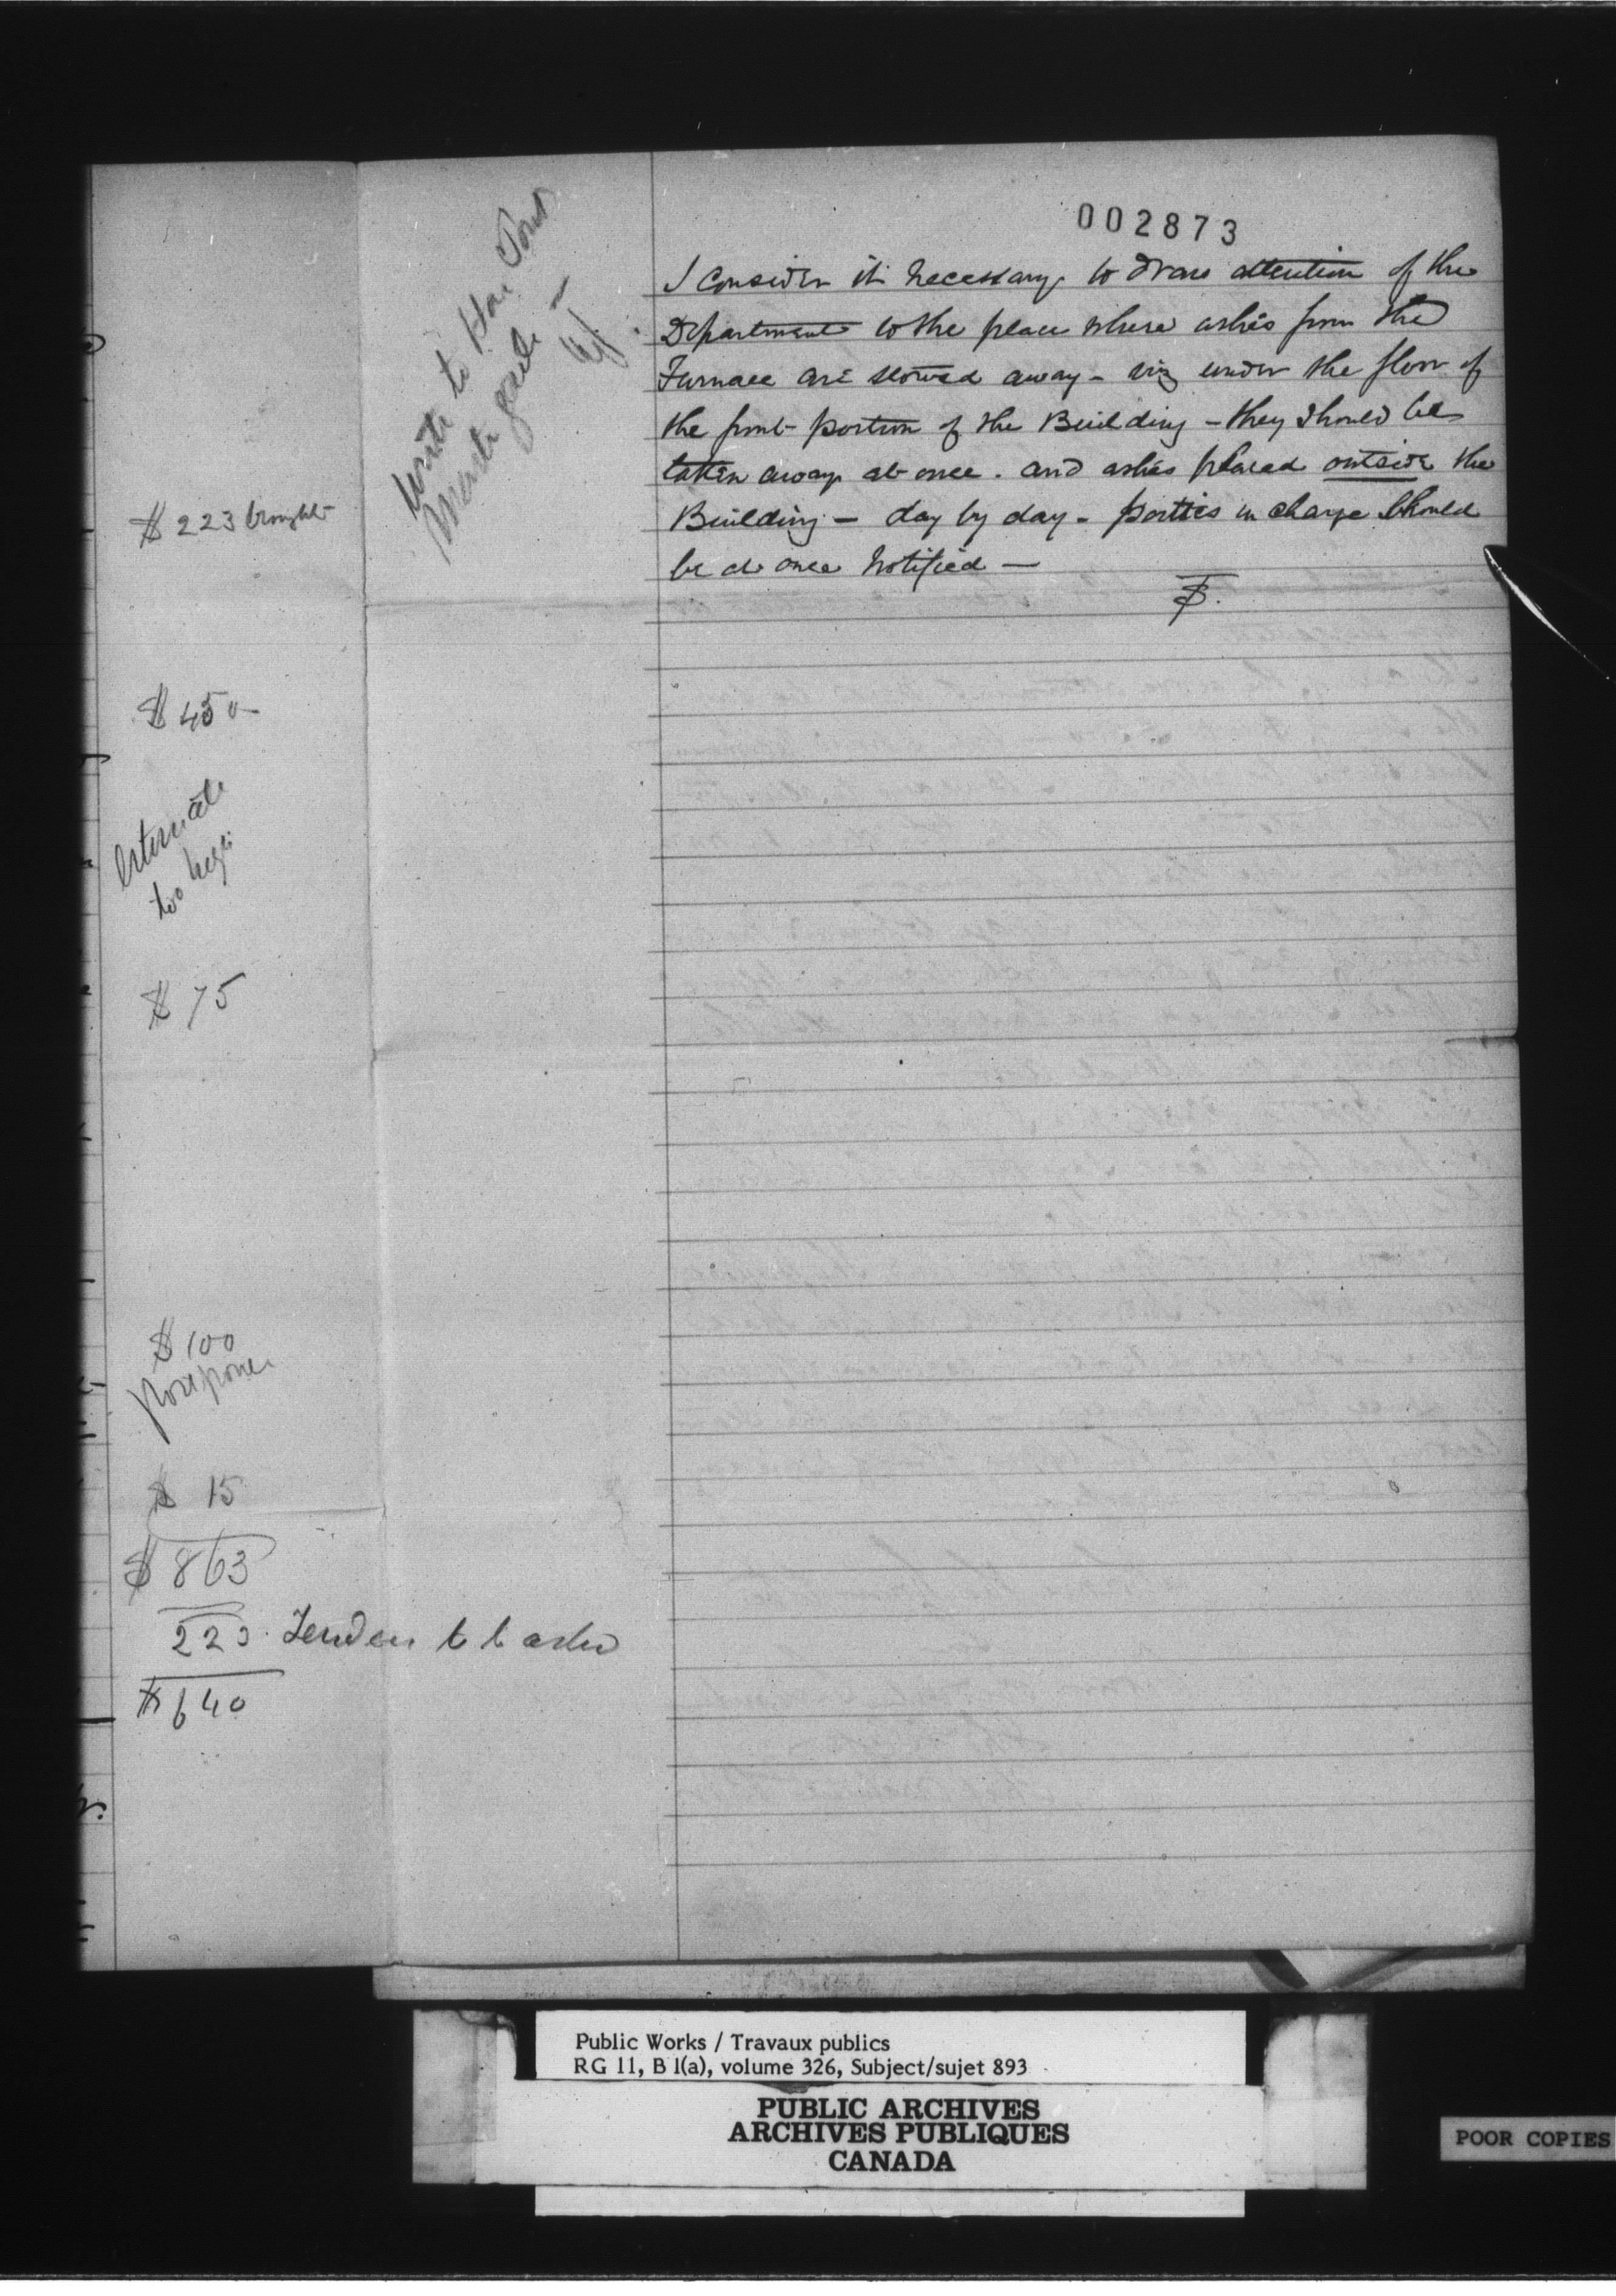 002873
I consider it necessary to draw attention of the
Department to the place where ashes from the
Furnace are stowed away - viz under the floor of
the front portion of the Building - they should be
taken away at once. and ashes placed outside the
Building - day by day - parties in charge should
be at once notified -
Write to Hon
$ 223 brought
$ 450
Estimate
too high
$ 75
$ 100
postpone
$ 15
$ 863
223 Tenders to be asked
$ 640
Public Works / Travaux publics
RG 11, B 1(a), volume 326, Subject/sujet 893
PUBLIC ARCHIVES
ARCHIVES PUBLIQUES
CANADA
POOR COPIES